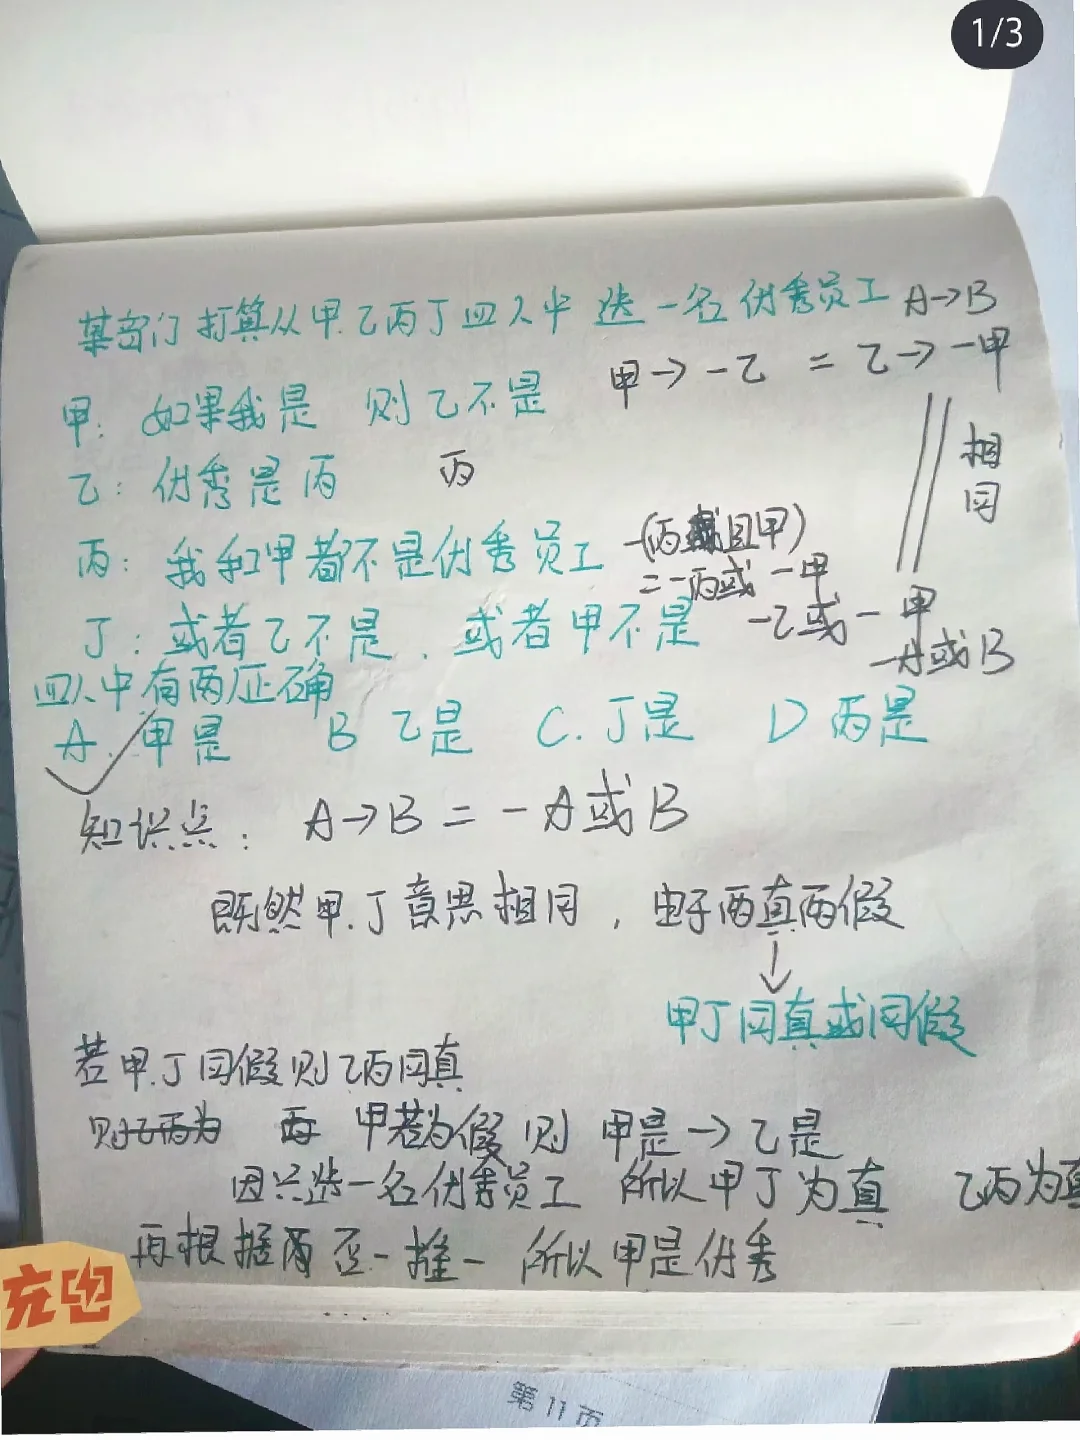 1/3
某部门打算从甲.乙丙丁四人中 选一名优秀员工 A→B
甲：如果我是 则乙不是 甲→-乙 = 乙→-甲
乙：优秀是丙 丙
相同
丙：我和甲都不是优秀员工 -(丙且甲)
=-丙或-甲
丁：或者乙不是、或者甲不是 -乙或-甲
-A或B
四人中有两正确
A.甲是 B 乙是 C.丁是 D 丙是
知识点： A→B = -A或B
既然甲.丁意思相同，由于两真两假
甲丁同真或同假
若甲.丁同假则乙丙同真
则乙丙为 甲若为假则 甲是→乙是
因只选一名优秀员工 所以甲丁为真 乙丙为真
再根据 否一推一 所以甲是优秀
充电
第11页